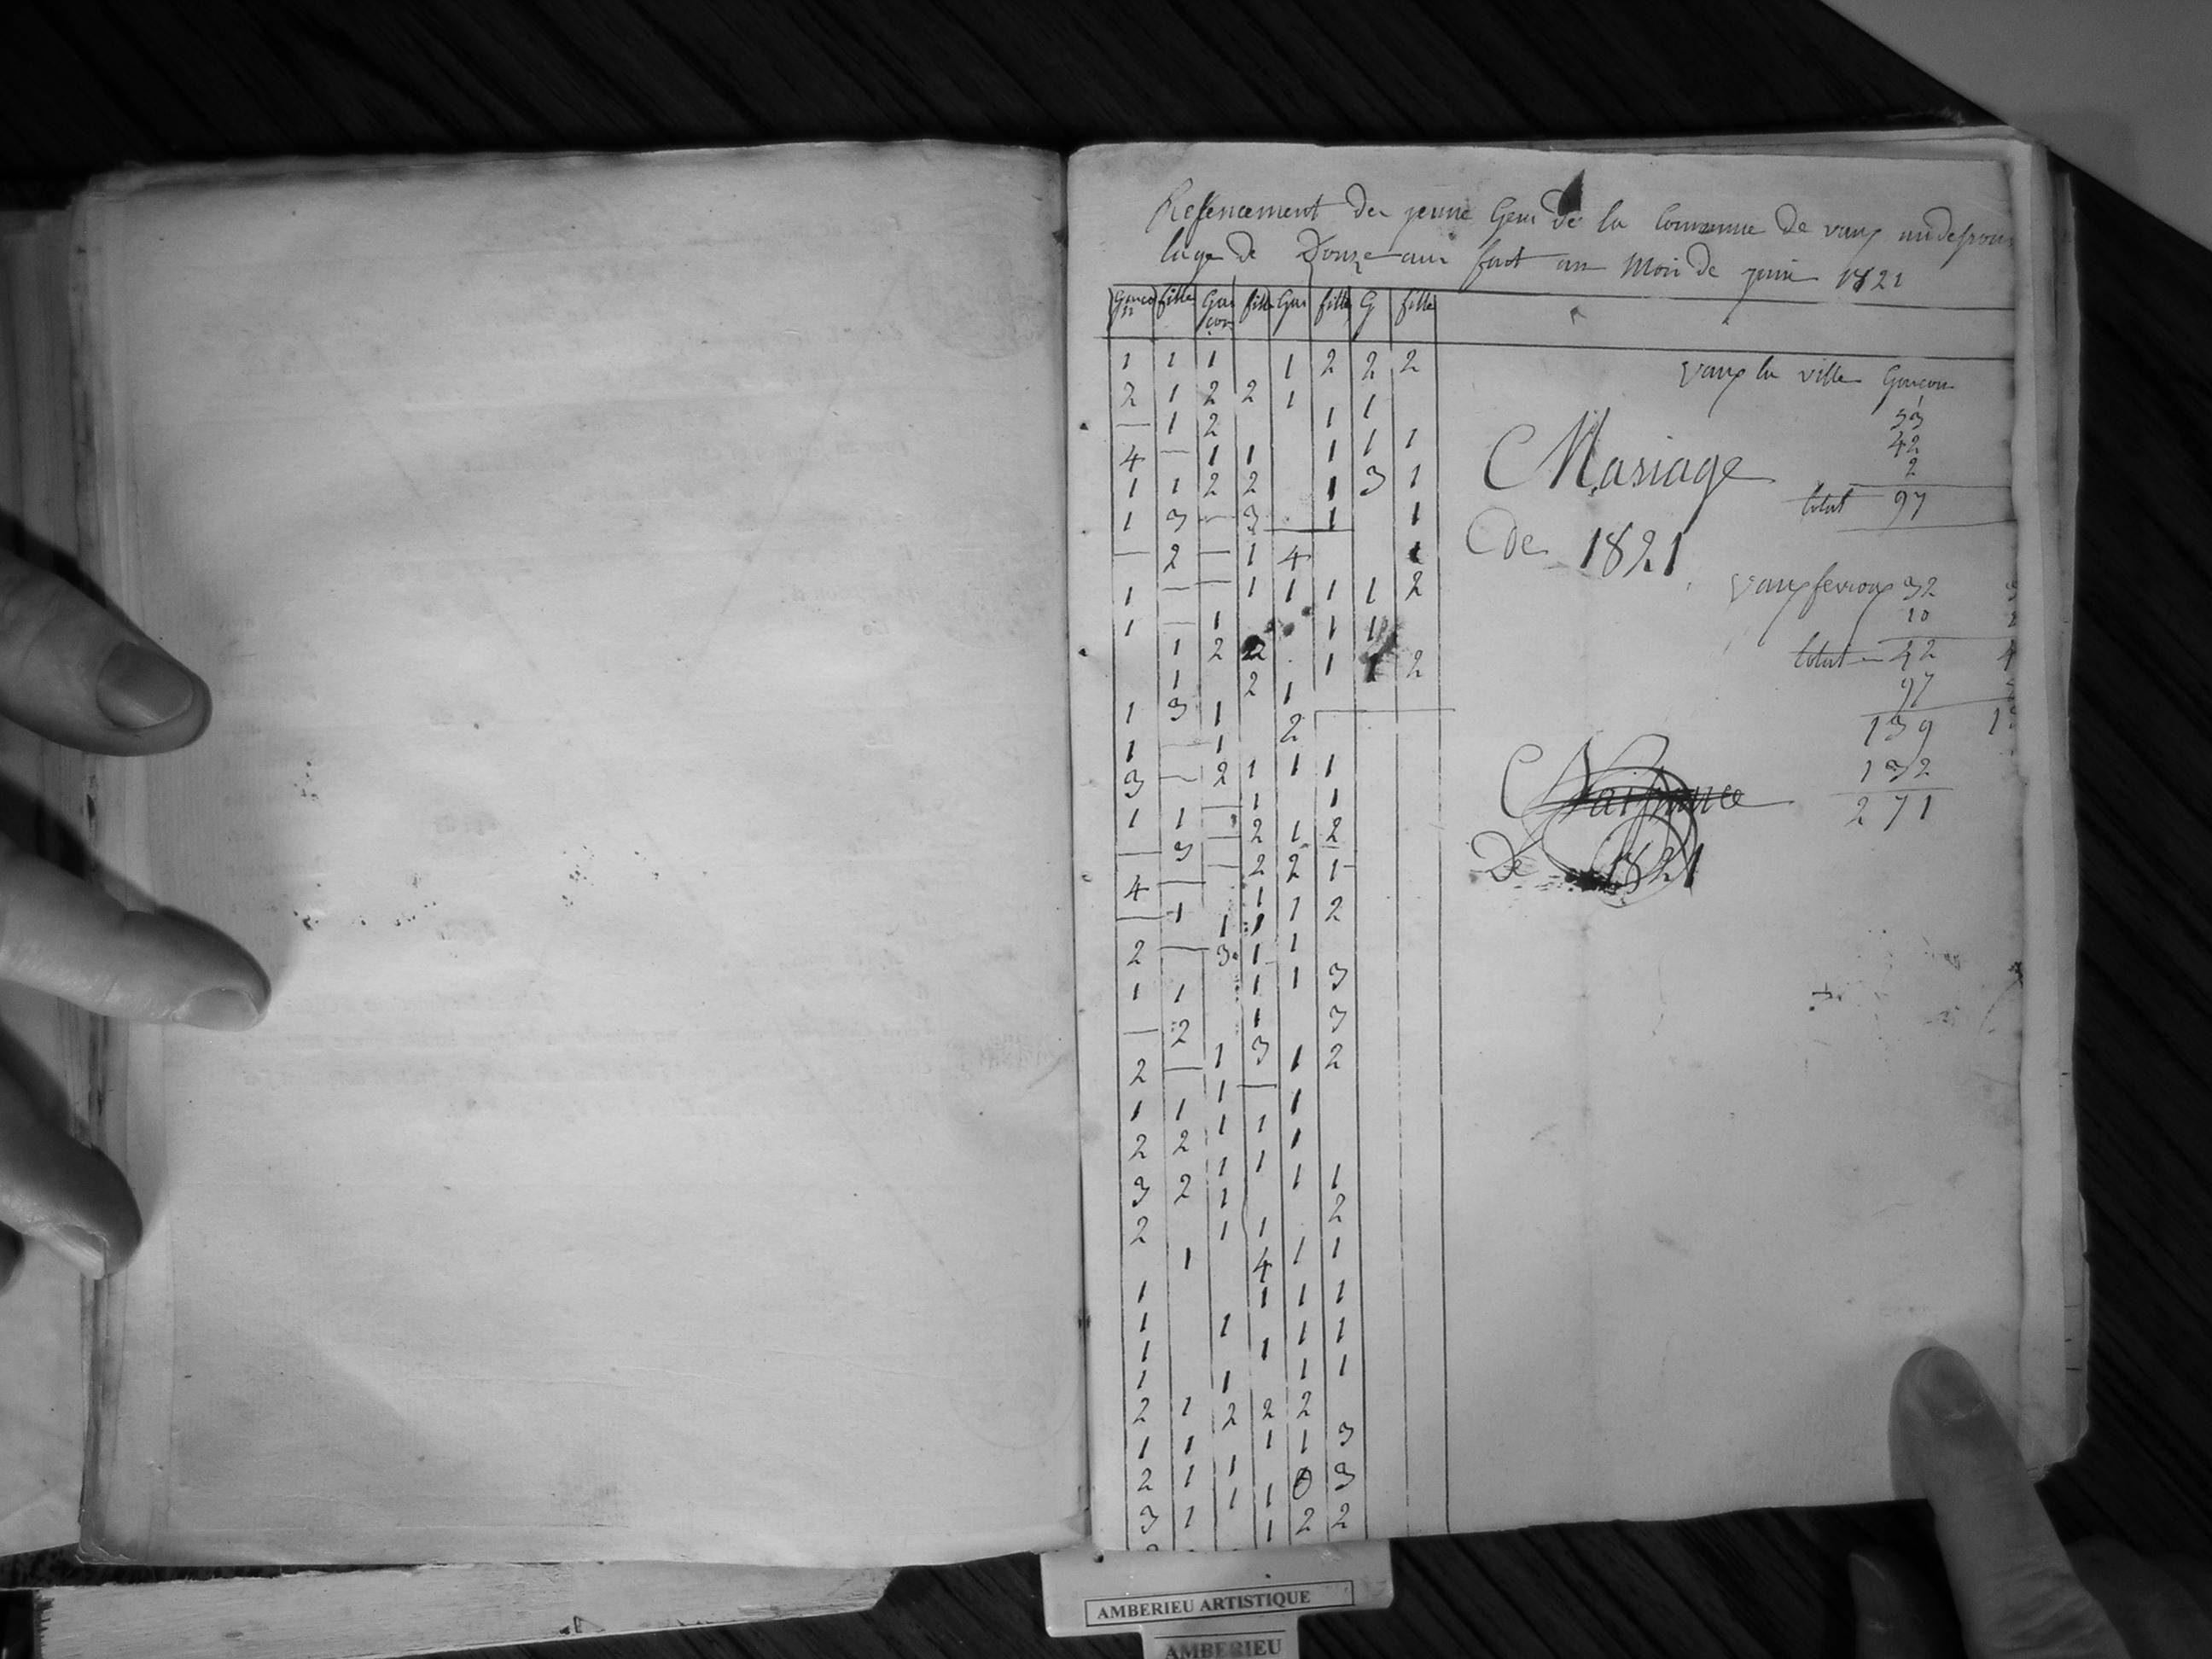 Ressencement des jeune Gens de la Commune de vaux audessous
lage de Douze ans fait au Mois de juin 1821
Garcon fille Garçon fille Gar fille G fille
1 1 1 1 2 2 2
2 1 2 2 1 1
— 1 2 1 1 1
4 — 1 1 1 3 1
1 1 2 2 1 1
1 3 — 3 1
— 2 — 1 4
1 — — 1 1 1 1 2
1 — 1 1 1
1 2 2 1 1 2
1 2 1
1 3 1 2
1 — 1
3 — 2 1 1 1
1 1 — 1 1
— 3 — 2 1 2
4 — — 2 2 1
— 1 1 1 2
2 — 3 1 1
1 1 1 1 3
— 2 1 3
2 — 1 3 1 2
1 1 1 — 1
2 2 1 1 1
3 2 1 1 1 1
2 1 1 2
1 4 1 1
1 1 1 1
1 1 1 1
1 1 1 1
1 1
2 1 2 2 2
1 1 1 1 3
2 1 1 1 0 3
3 1 1 2 2
vaux la ville Garcon
53
42
2
total 97
Mariage
De 1821
vaux fevroux 32
10
total — 42
97
139
132
271
Naissance
De 1821
AMBERIEU ARTISTIQUE
AMBERIEU